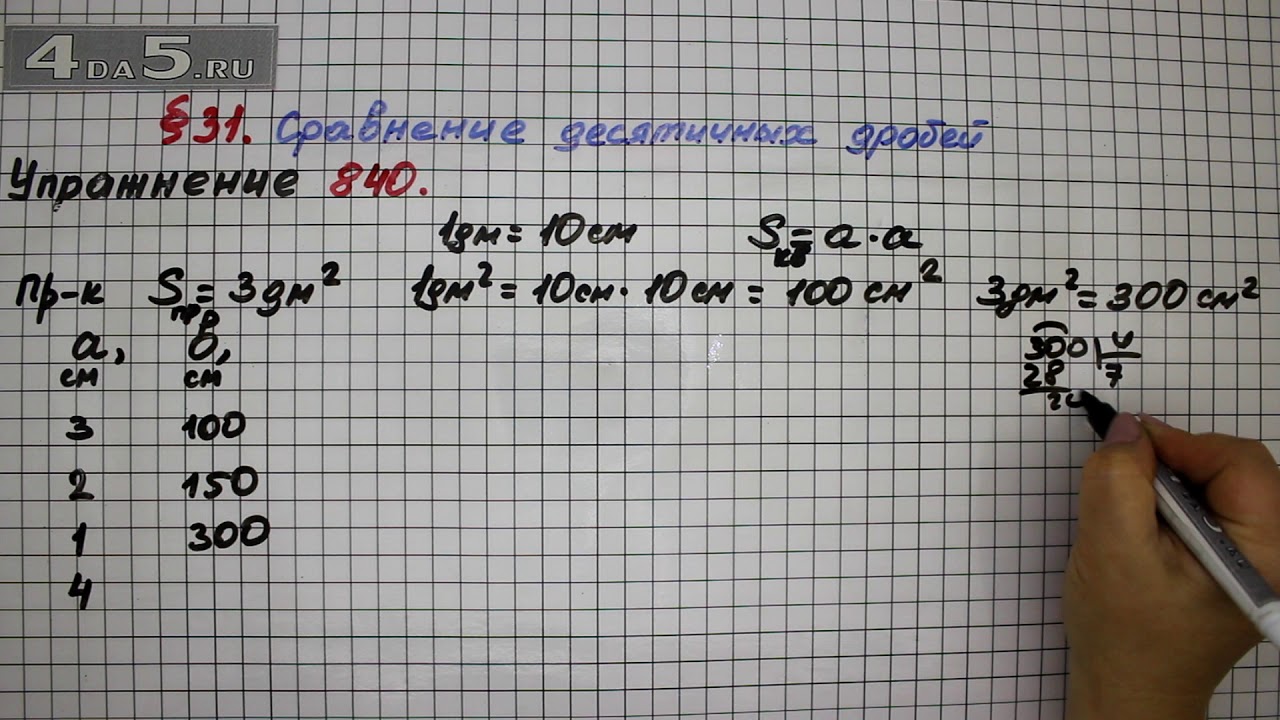 4DA5.RU
§31. Сравнение десятичных дробей
Упражнение 840.
1дм = 10см Sкв = a·a
Пр-к Sпр = 3дм² 1дм² = 10см·10см = 100см² 3дм² = 300см²
a, см b, см
300 | 4
28 7
20
3 100
2 150
1 300
4